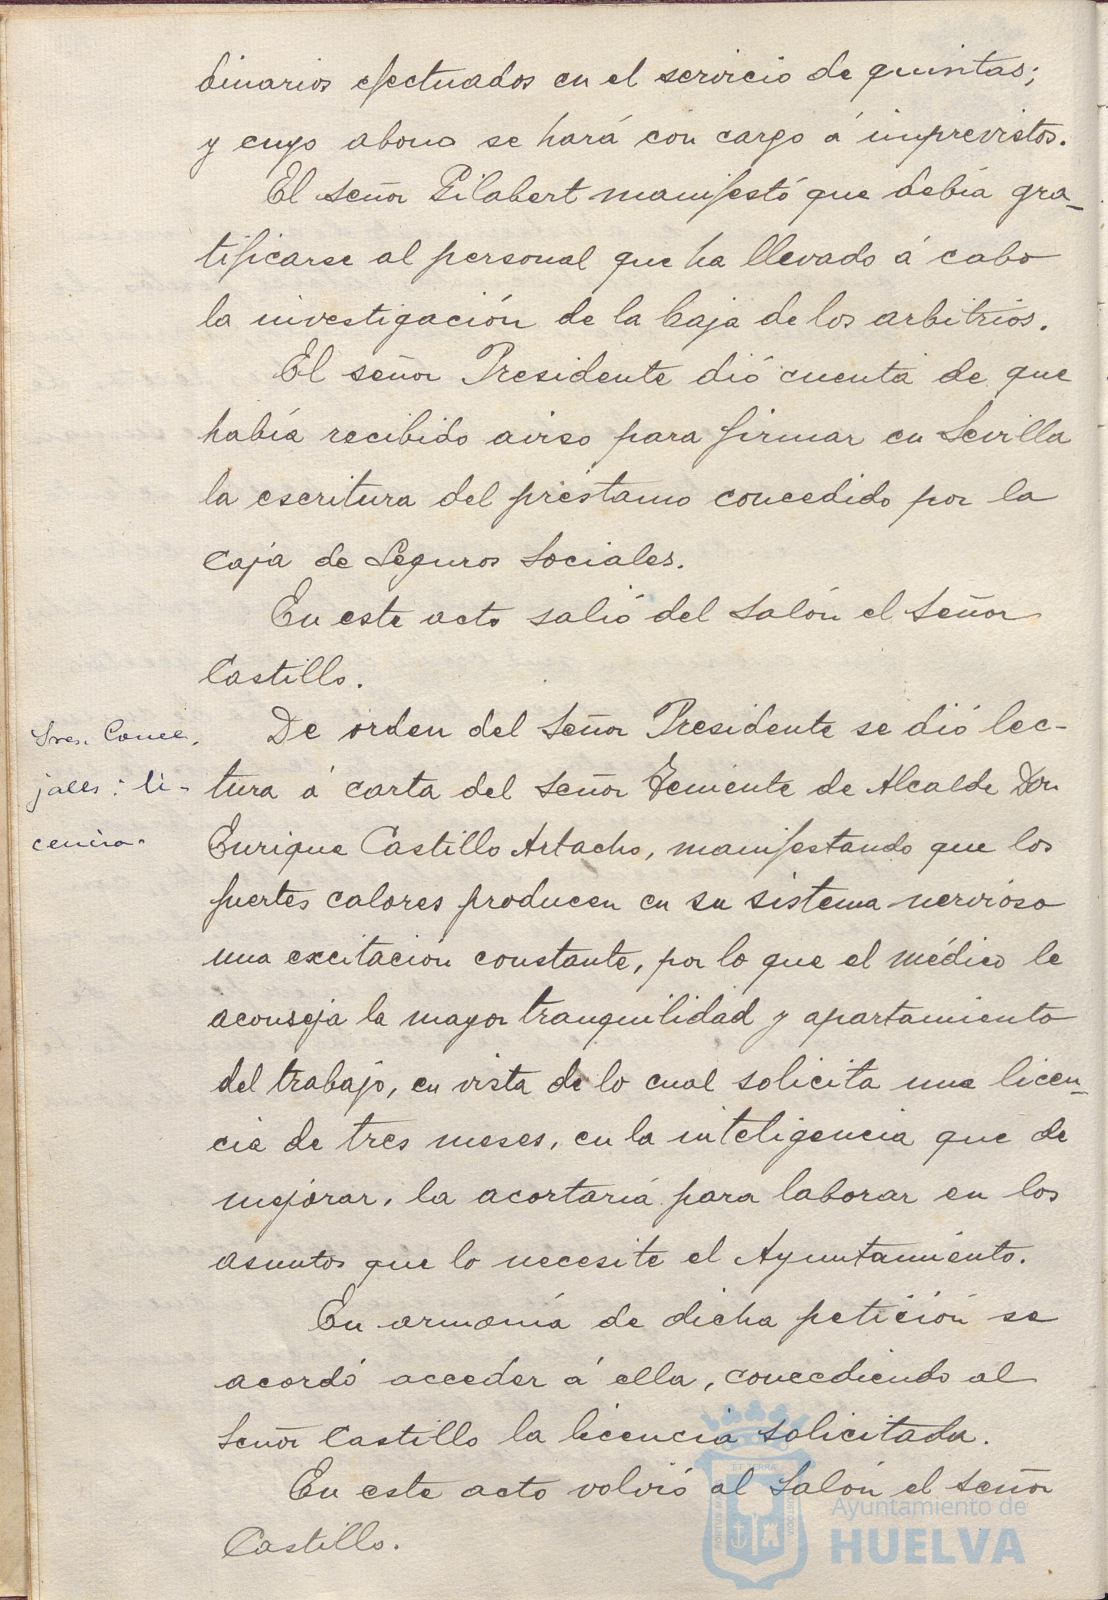 dinarios efectuados en el servicio de quintas;
y cuyo abono se hará con cargo á imprevistos.
El señor Gilabert manifestó que debía gra-
tificarse al personal que ha llevado á cabo
la investigación de la baja de los arbitrios.
El señor Presidente dió cuenta de que
había recibido aviso para firmar en Sevilla
la escritura del préstamo concedido por la
Caja de Seguros Sociales.
En este acto salió del Salón el Señor
Castillo.
Sres. Conce-
jales: li-
cencia.
De orden del Señor Presidente se dió lec-
tura á carta del Señor Teniente de Alcalde Don
Enrique Castillo Artacho, manifestando que los
fuertes calores producen en su sistema nervioso
una excitación constante, por lo que el médico le
aconseja la mayor tranquilidad y apartamiento
del trabajo, en vista de lo cual solicita una licen-
cia de tres meses, en la inteligencia que de
mejorar, la acortaría para laborar en los
asuntos que lo necesite el Ayuntamiento.
En armonía de dicha petición se
acordó acceder á ella, concediendo al
Señor Castillo la licencia solicitada.
En este acto volvió al Salón el Señor
Castillo.
Ayuntamiento de
HUELVA